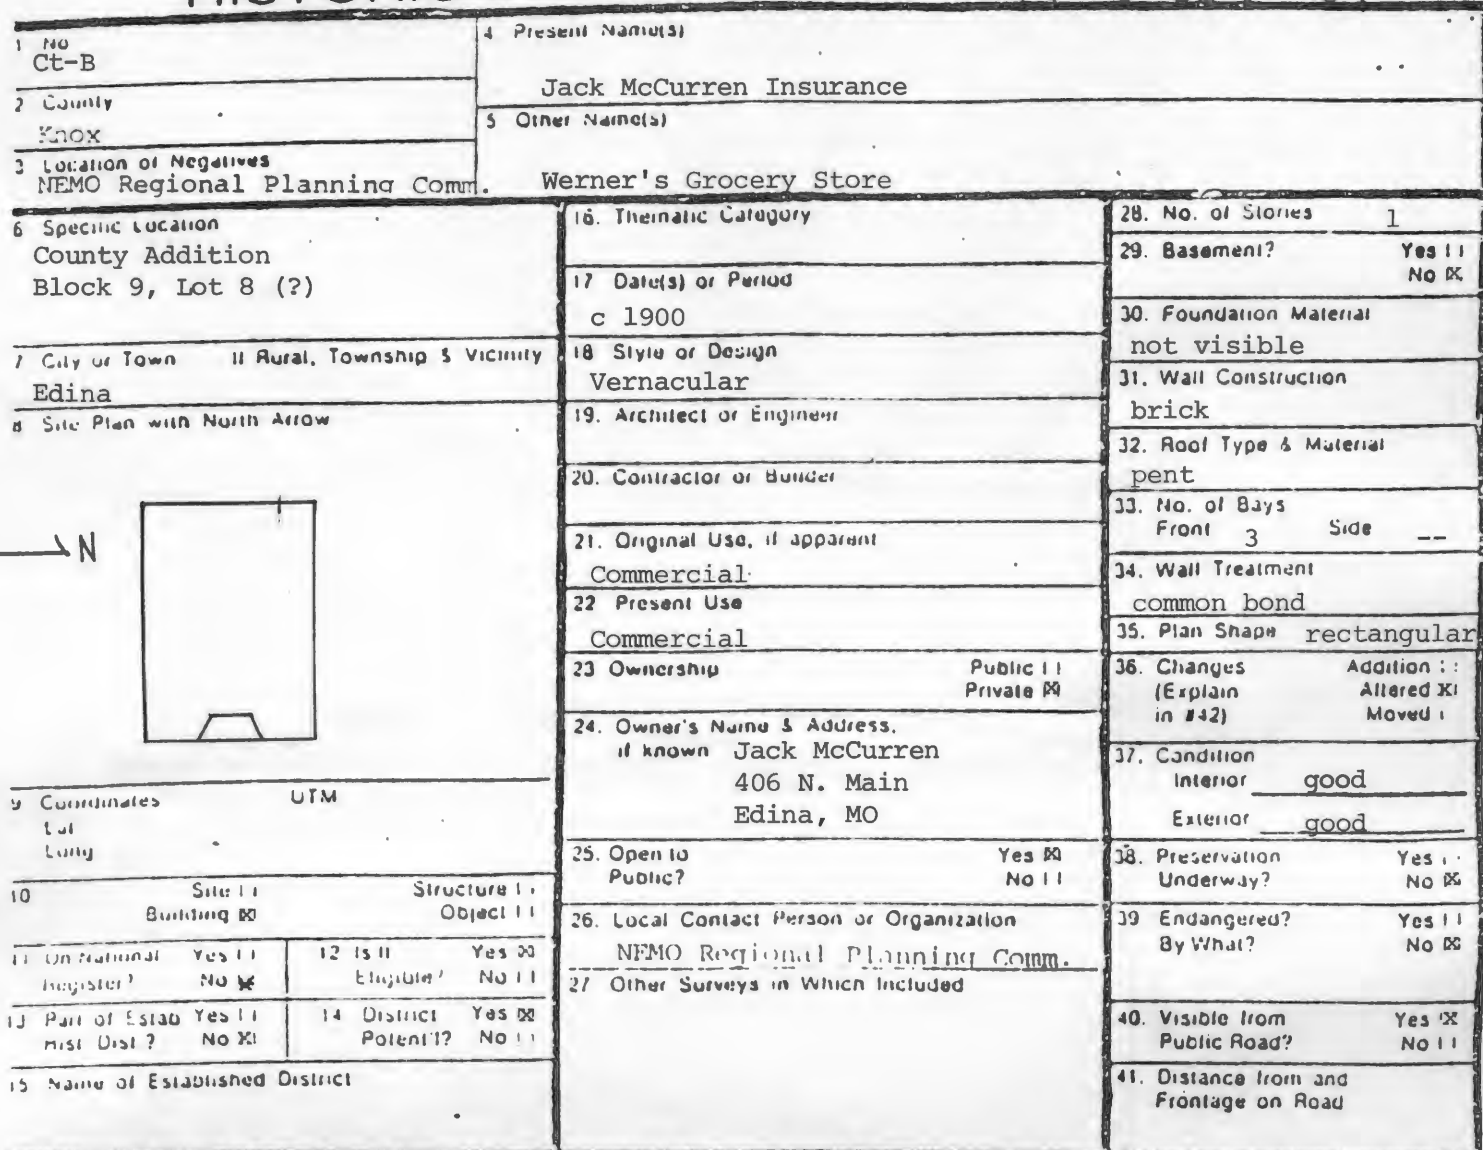 1 No
Ct-B
2 County
Knox
3 Location of Negatives
NEMO Regional Planning Comm.
4 Present Name(s)
Jack McCurren Insurance
5 Other Name(s)
Werner's Grocery Store
6 Specific Location
County Addition
Block 9, Lot 8 (?)
7 City or Town If Rural, Township & Vicinity
Edina
8 Site Plan with North Arrow
N
9 Coordinates UTM
Lat
Long
10 Site [ ] Structure [ ]
Building [X] Object [ ]
11 On National Yes [ ]
Register? No [X]
12 Is It Yes [X]
Eligible? No [ ]
13 Part of Estab Yes [ ]
Hist Dist? No [X]
14 District Yes [X]
Potent'l? No [ ]
15 Name of Established District
16. Thematic Category
17 Date(s) or Period
c 1900
18 Style or Design
Vernacular
19. Architect or Engineer
20. Contractor or Builder
21. Original Use, if apparent
Commercial
22 Present Use
Commercial
23 Ownership Public [ ]
Private [X]
24. Owner's Name & Address,
if known Jack McCurren
406 N. Main
Edina, MO
25. Open to Yes [X]
Public? No [ ]
26. Local Contact Person or Organization
NEMO Regional Planning Comm.
27 Other Surveys in Which Included
28. No. of Stories 1
29. Basement? Yes [ ]
No [X]
30. Foundation Material
not visible
31. Wall Construction
brick
32. Roof Type & Material
pent
33. No. of Bays
Front 3 Side --
34. Wall Treatment
common bond
35. Plan Shape rectangular
36. Changes Addition [ ]
(Explain Altered [X]
in #42) Moved [ ]
37. Condition
Interior good
Exterior good
38. Preservation Yes [ ]
Underway? No [X]
39 Endangered? Yes [ ]
By What? No [X]
40. Visible from Yes [X]
Public Road? No [ ]
41. Distance from and
Frontage on Road